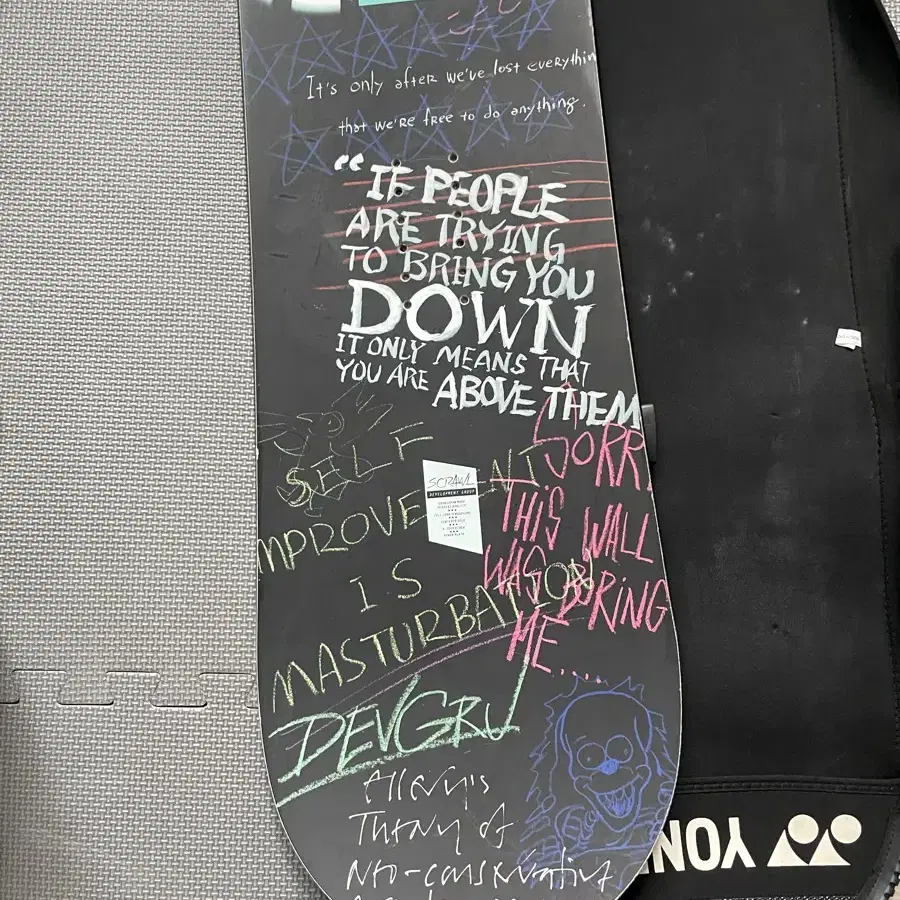 It's only after we've lost everythin
that we're free to do anything.
“IF PEOPLE
ARE TRYING
TO BRING YOU
DOWN
IT ONLY MEANS THAT
YOU ARE ABOVE THEM
SORR
THIS WALL
WAS BORING
ME....
SELF
IMPROVEMENT
IS
MASTURBATION
SCRAWL
DEVELOPMENT GROUP
DEVGRU
Theory of
Neo-conservative
YONE